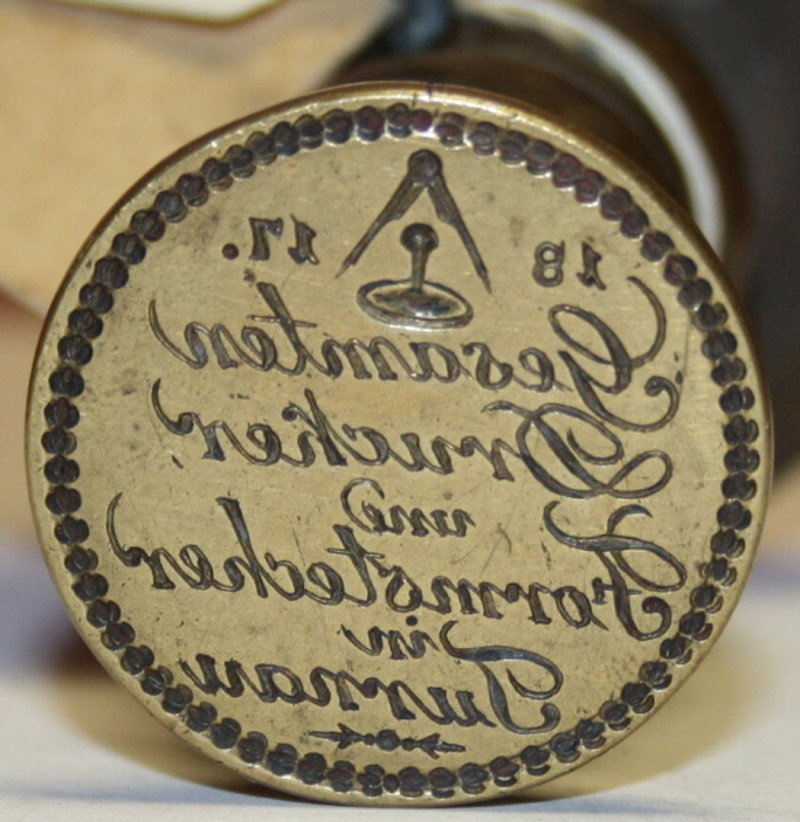 18 17.
Gesamten
Drucker
und
Formstecher
in
Turnau